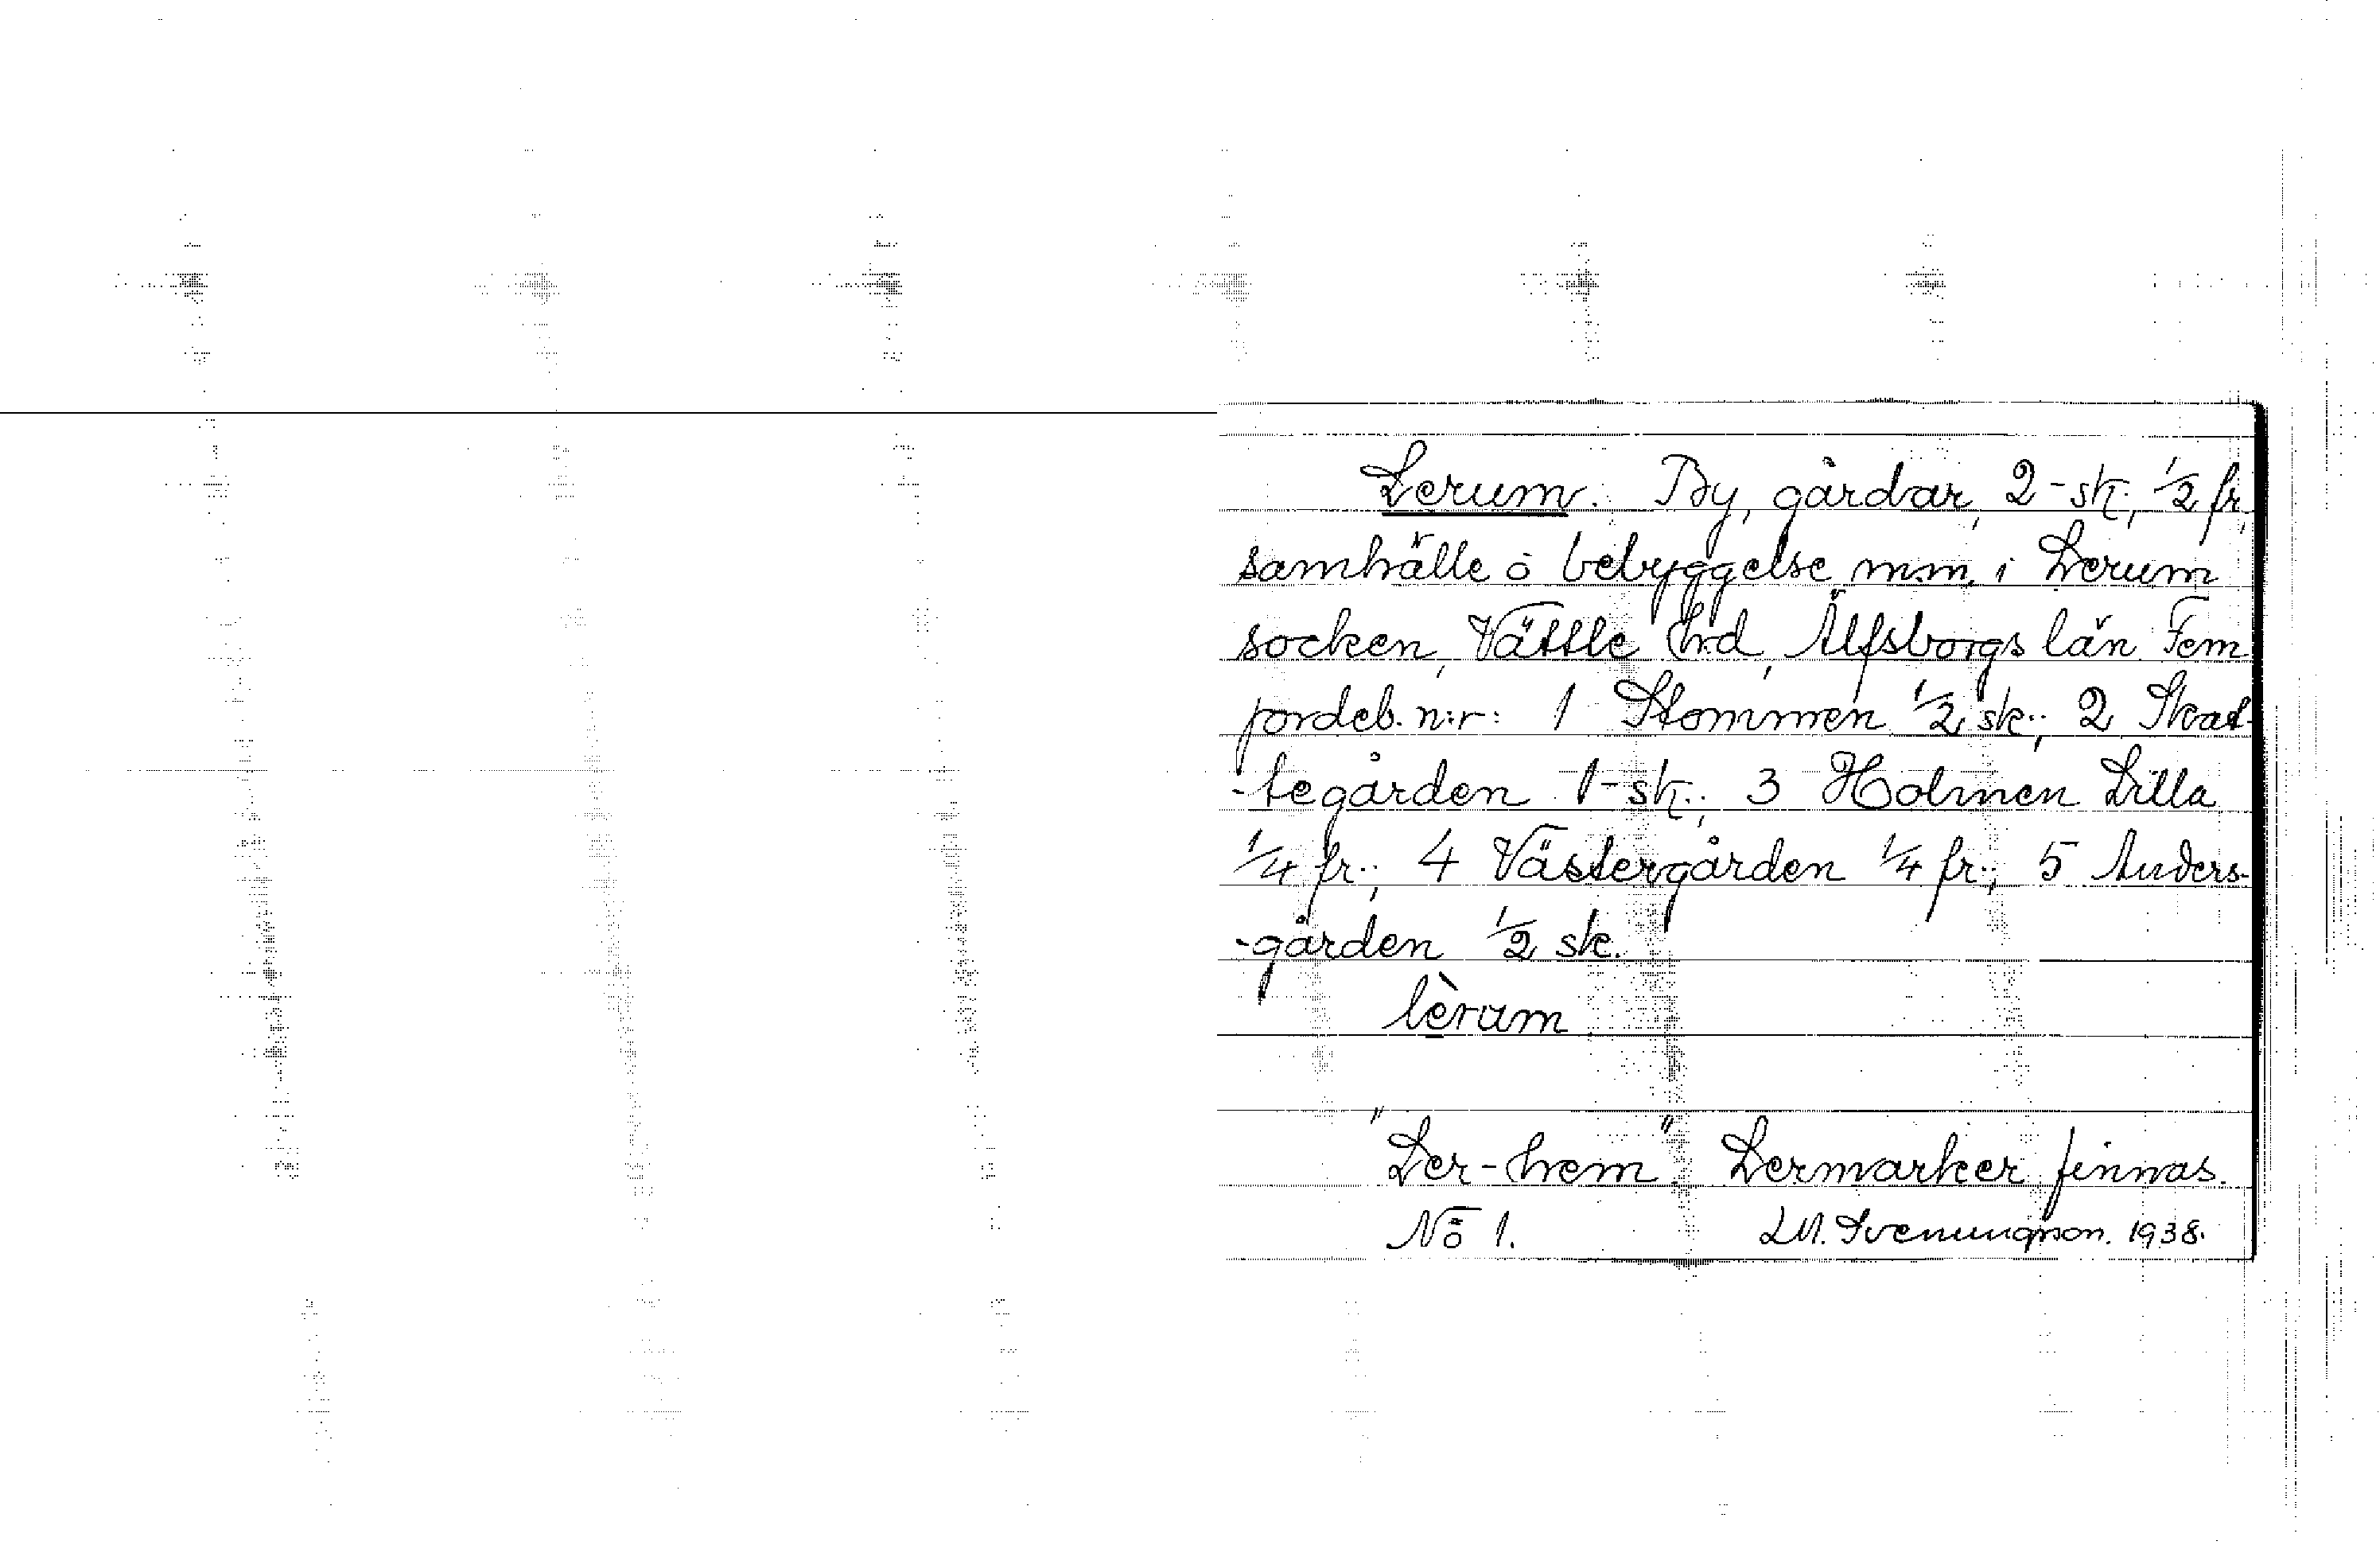 Lerum. By, gårdar, 2-sk., 1/2 fr,
samhälle o bebyggelse m.m. i Lerum
socken, Vättle hrd, Älfsborgs län. Fem
jordeb. n:r: 1 Stommen 1/2 sk.; 2 Skat-
-tegården 1-sk.; 3 Holmen Lilla
1/4 fr.; 4 Västergården 1/4 fr.; 5 Anders-
-gården 1/2 sk.
lèrum
"Ler-hem". Lermarker finnas.
No 1. LM. Svenungson. 1938.